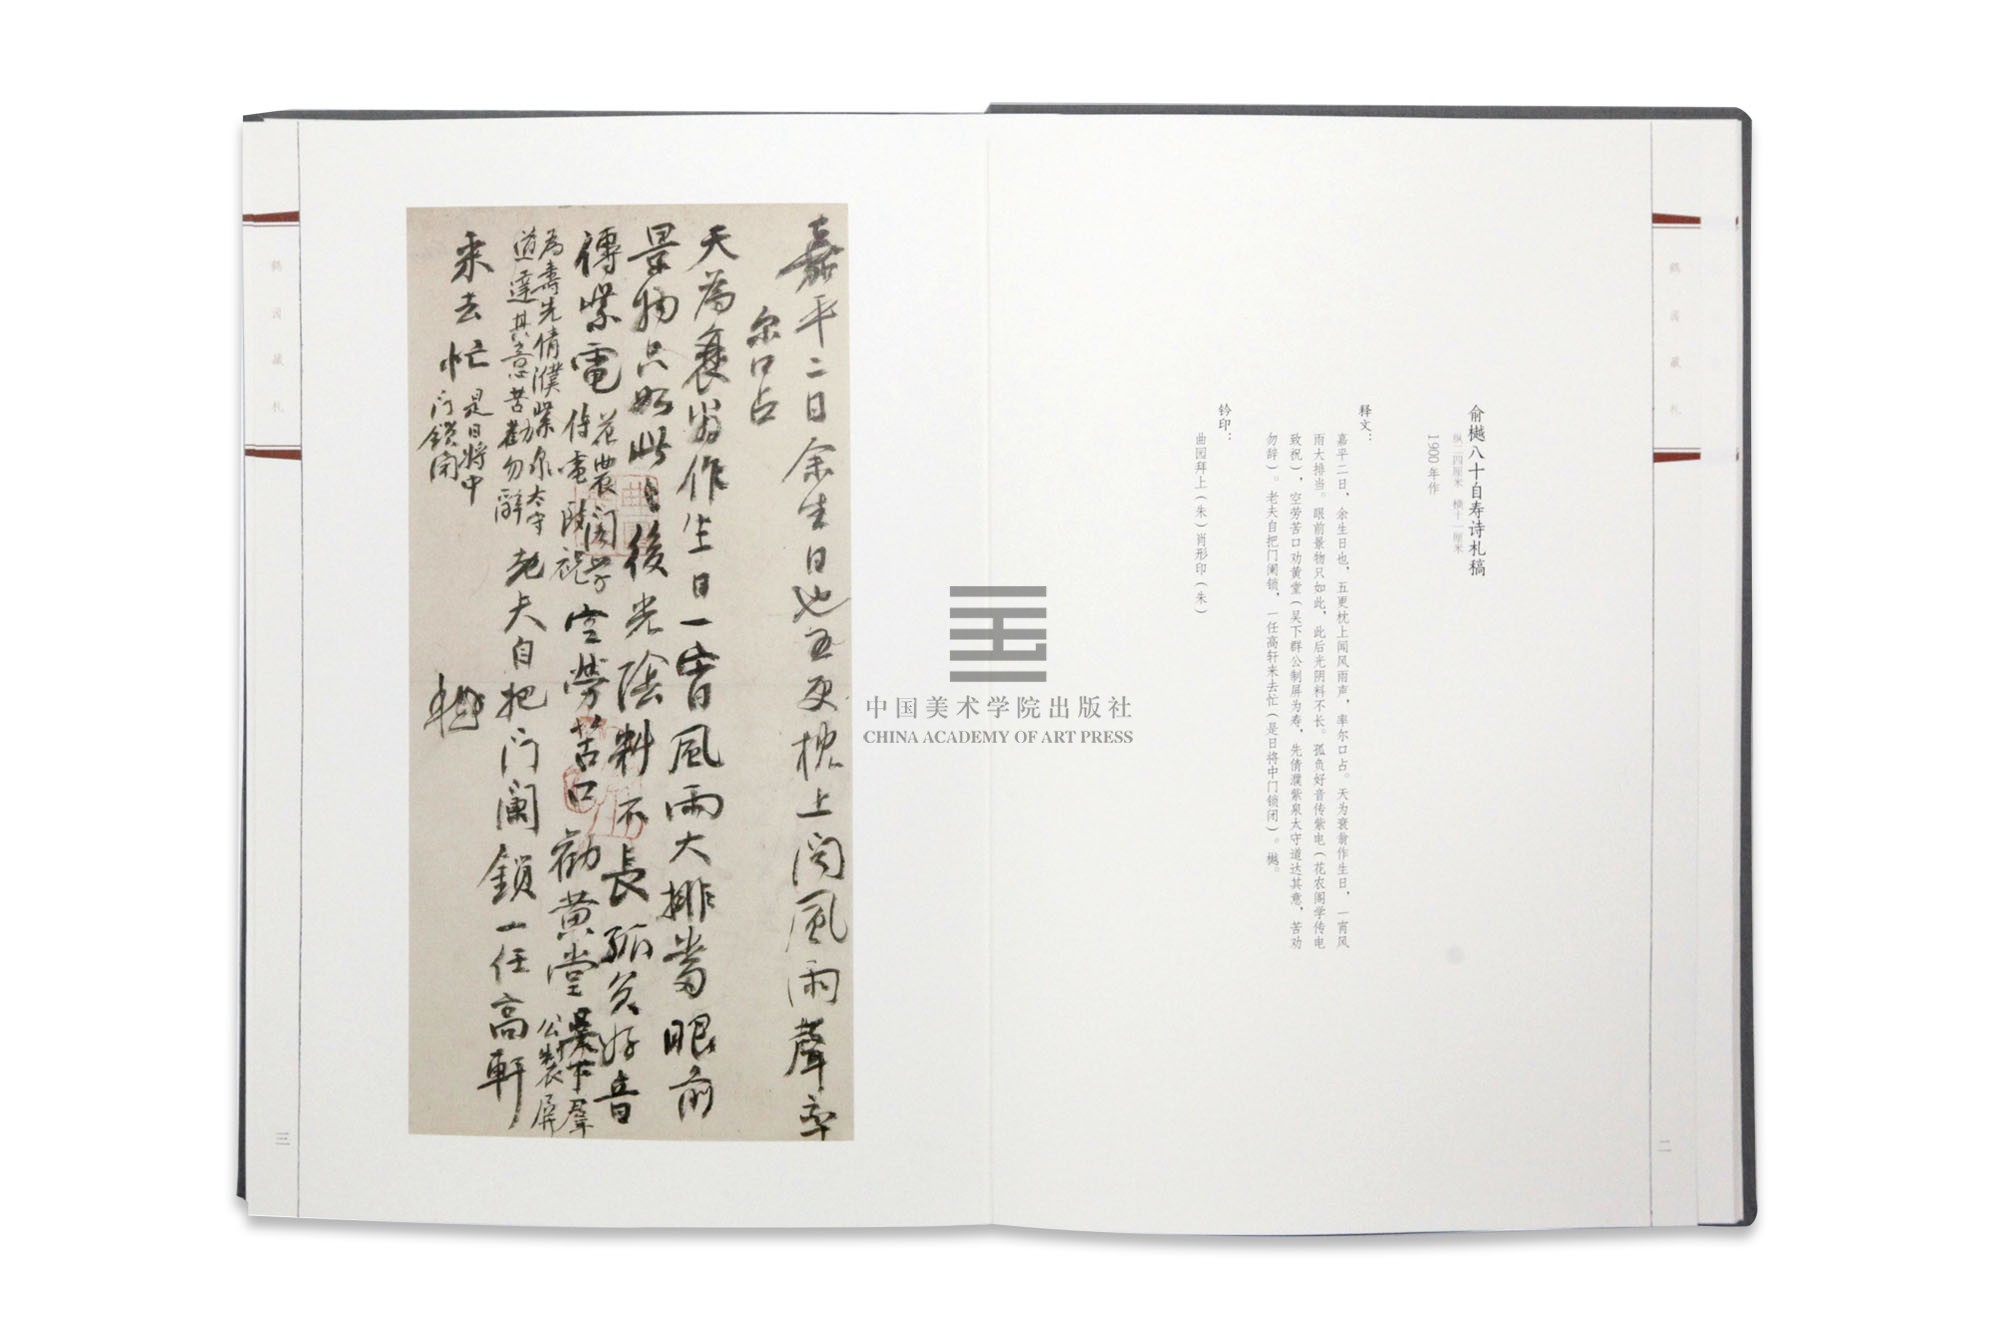 俞樾八十自寿诗札稿
纵二四厘米 横十一厘米
1900年作
释文：
嘉平二日，余生日也，五更枕上闻风雨声，率尔口占。天为衰翁作生日，一宵风
雨大排当。眼前景物只如此，此后光阴料不长。孤负好音传紫电（花农阁学传电
致祝），空劳苦口劝黄堂（吴下群公制屏为寿，先倩濮紫泉太守道达其意，苦劝
勿辞）。老夫自把门阑锁，一任高轩来去忙（是日将中门锁闭）。樾。
钤印：
曲园拜上（朱）肖形印（朱）
二
嘉平二日余生日也五更枕上闻風雨聲率
尔口占
天為衰翁作生日一宵風雨大排當眼前
景物只如此此後光陰料不長孤負好音
傳紫電花農阁学傳電致祝空勞苦口勸黄堂吴下羣公製屏
為壽先倩濮紫泉太守道達其意苦勸勿辭老夫自把门闌鎖一任高軒
来去忙是日將中门鎖闭
樾
三
中国美术学院出版社
CHINA ACADEMY OF ART PRESS